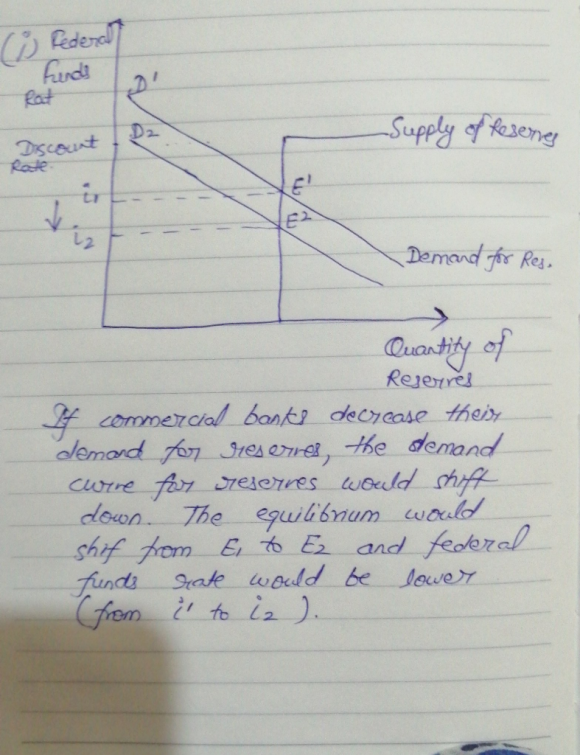 (i) Federal
Funds
Rat
D'
D2
Discount
Rate
Supply of Reserves
i1
E'
i2
E2
Demand for Res.
Quantity of
Reserves
If commercial banks decrease their
demand for reserves, the demand
curve for reserves would shift
down. The equilibrium would
shif from E1 to E2 and federal
funds rate would be lower
(from i' to i2).